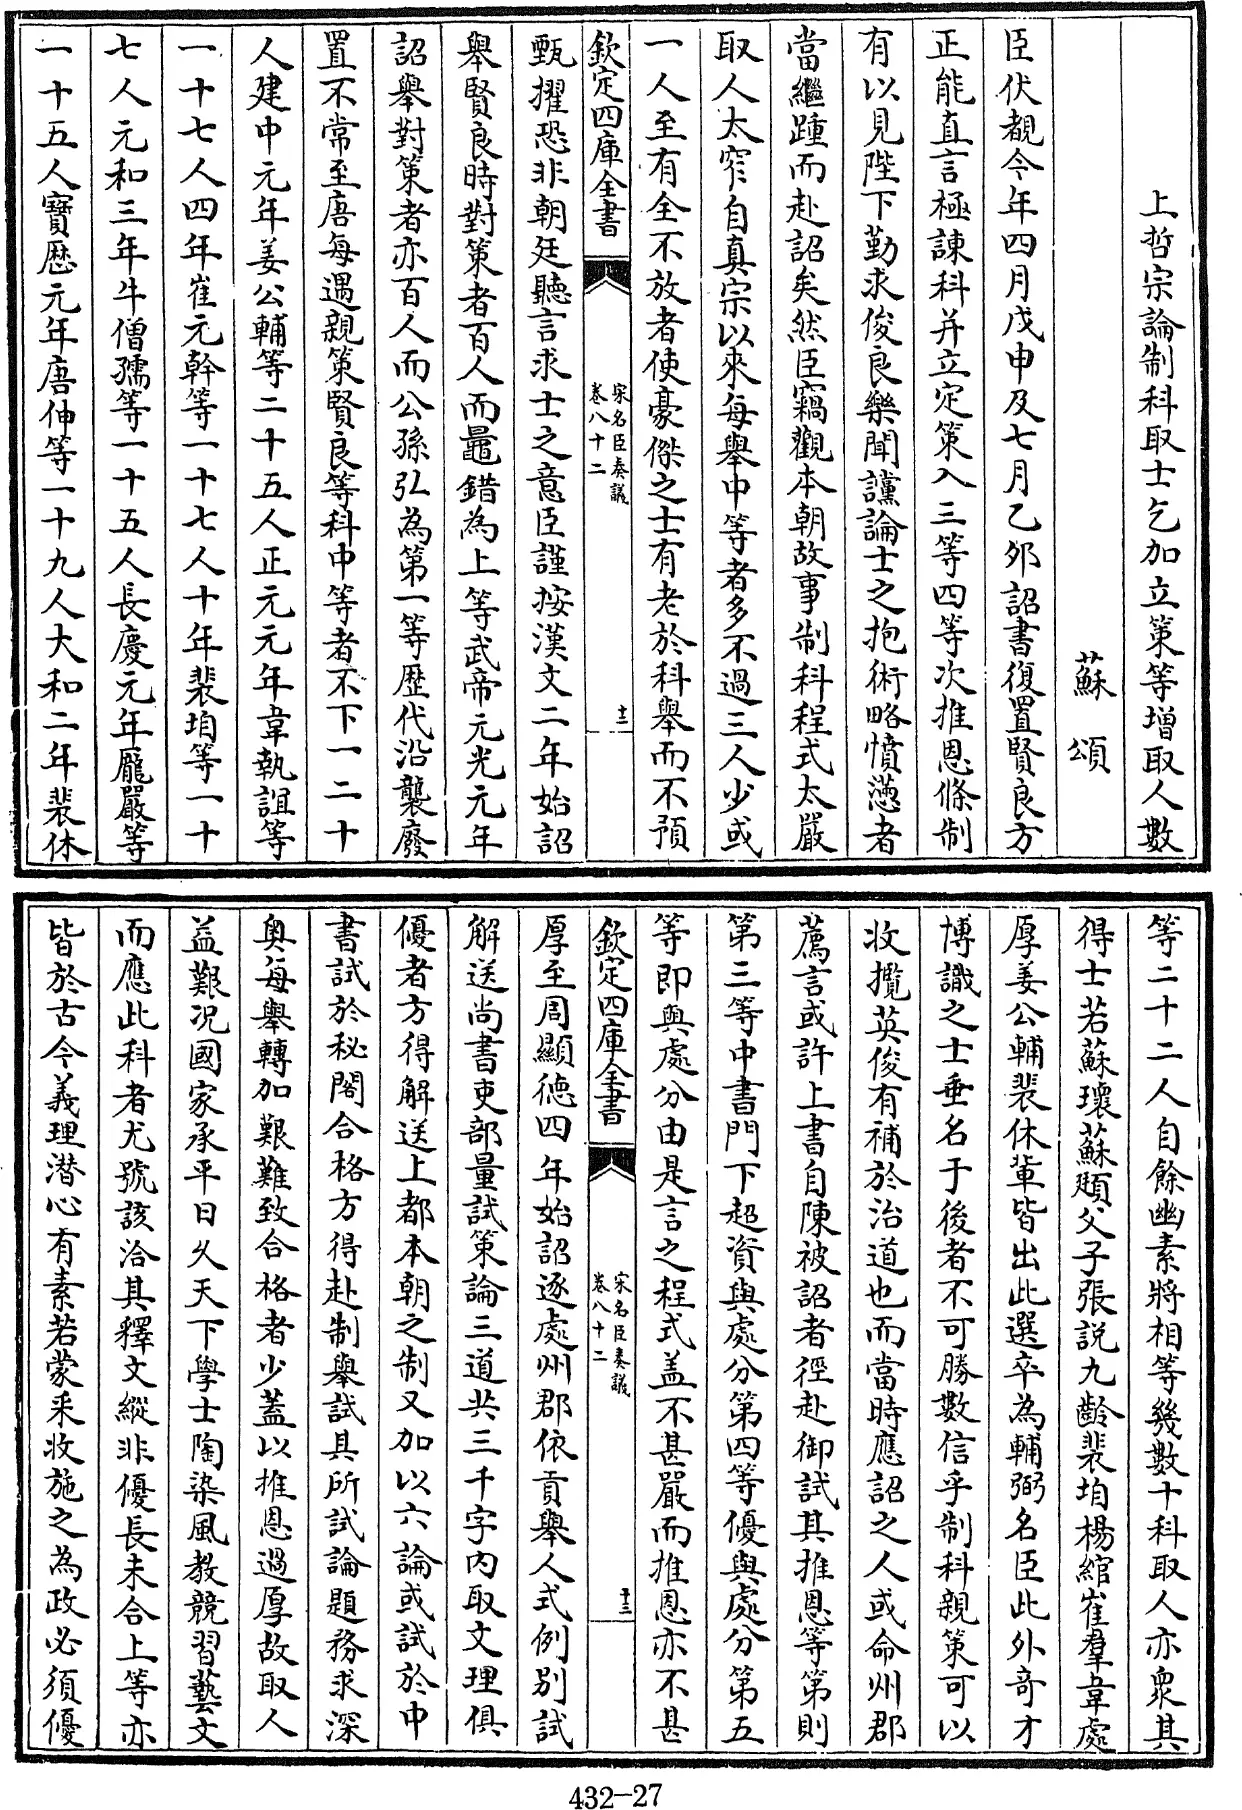 上哲宗論制科取士乞加立策等增取人數
蘇頌
臣伏覩今年四月戊申及七月乙夘詔書復置賢良方
正能直言極諫科并立定策入三等四等次推恩條制
有以見陛下勤求俊良樂聞讜論士之抱術略憤懣者
當繼踵而赴詔矣然臣竊觀本朝故事制科程式太嚴
取人太窄自真宗以來每舉中等者多不過三人少或
一人至有全不放者使豪傑之士有老於科舉而不預
欽定四庫全書
宋名臣奏議
卷八十二
十二
甄擢恐非朝廷聽言求士之意臣謹按漢文二年始詔
舉賢良時對策者百人而鼂錯為上等武帝元光元年
詔舉對策者亦百人而公孫弘為第一等歴代沿襲廢
置不常至唐每遇親策賢良等科中等者不下一二十
人建中元年姜公輔等二十五人正元元年韋執誼等
一十七人四年崔元幹等一十七人十年裴垍等一十
七人元和三年牛僧孺等一十五人長慶元年龐嚴等
一十五人寶歴元年唐伸等一十九人大和二年裴休
等二十二人自餘幽素將相等幾數十科取人亦衆其
得士若蘇瓌蘇頲父子張説九齡裴垍楊綰崔羣韋處
厚姜公輔裴休軰皆出此選卒為輔弼名臣此外竒才
博識之士垂名于後者不可勝數信乎制科親策可以
收攬英俊有補於治道也而當時應詔之人或命州郡
薦言或許上書自陳被詔者徑赴御試其推恩等第則
第三等中書門下超資與處分第四等優與處分第五
等即與處分由是言之程式盖不甚嚴而推恩亦不甚
欽定四庫全書
宋名臣奏議
卷八十二
十三
厚至周顯德四年始詔逐處州郡依貢舉人式例别試
解送尚書吏部量試策論三道共三千字内取文理俱
優者方得解送上都本朝之制又加以六論或試於中
書試於秘閣合格方得赴制舉試其所試論題務求深
奥每舉轉加艱難致合格者少蓋以推恩過厚故取人
益艱况國家承平日乆天下學士陶染風教競習藝文
而應此科者尤號該洽其釋文縱非優長未合上等亦
皆於古今義理潜心有素若蒙采收施之為政必須優
432-27